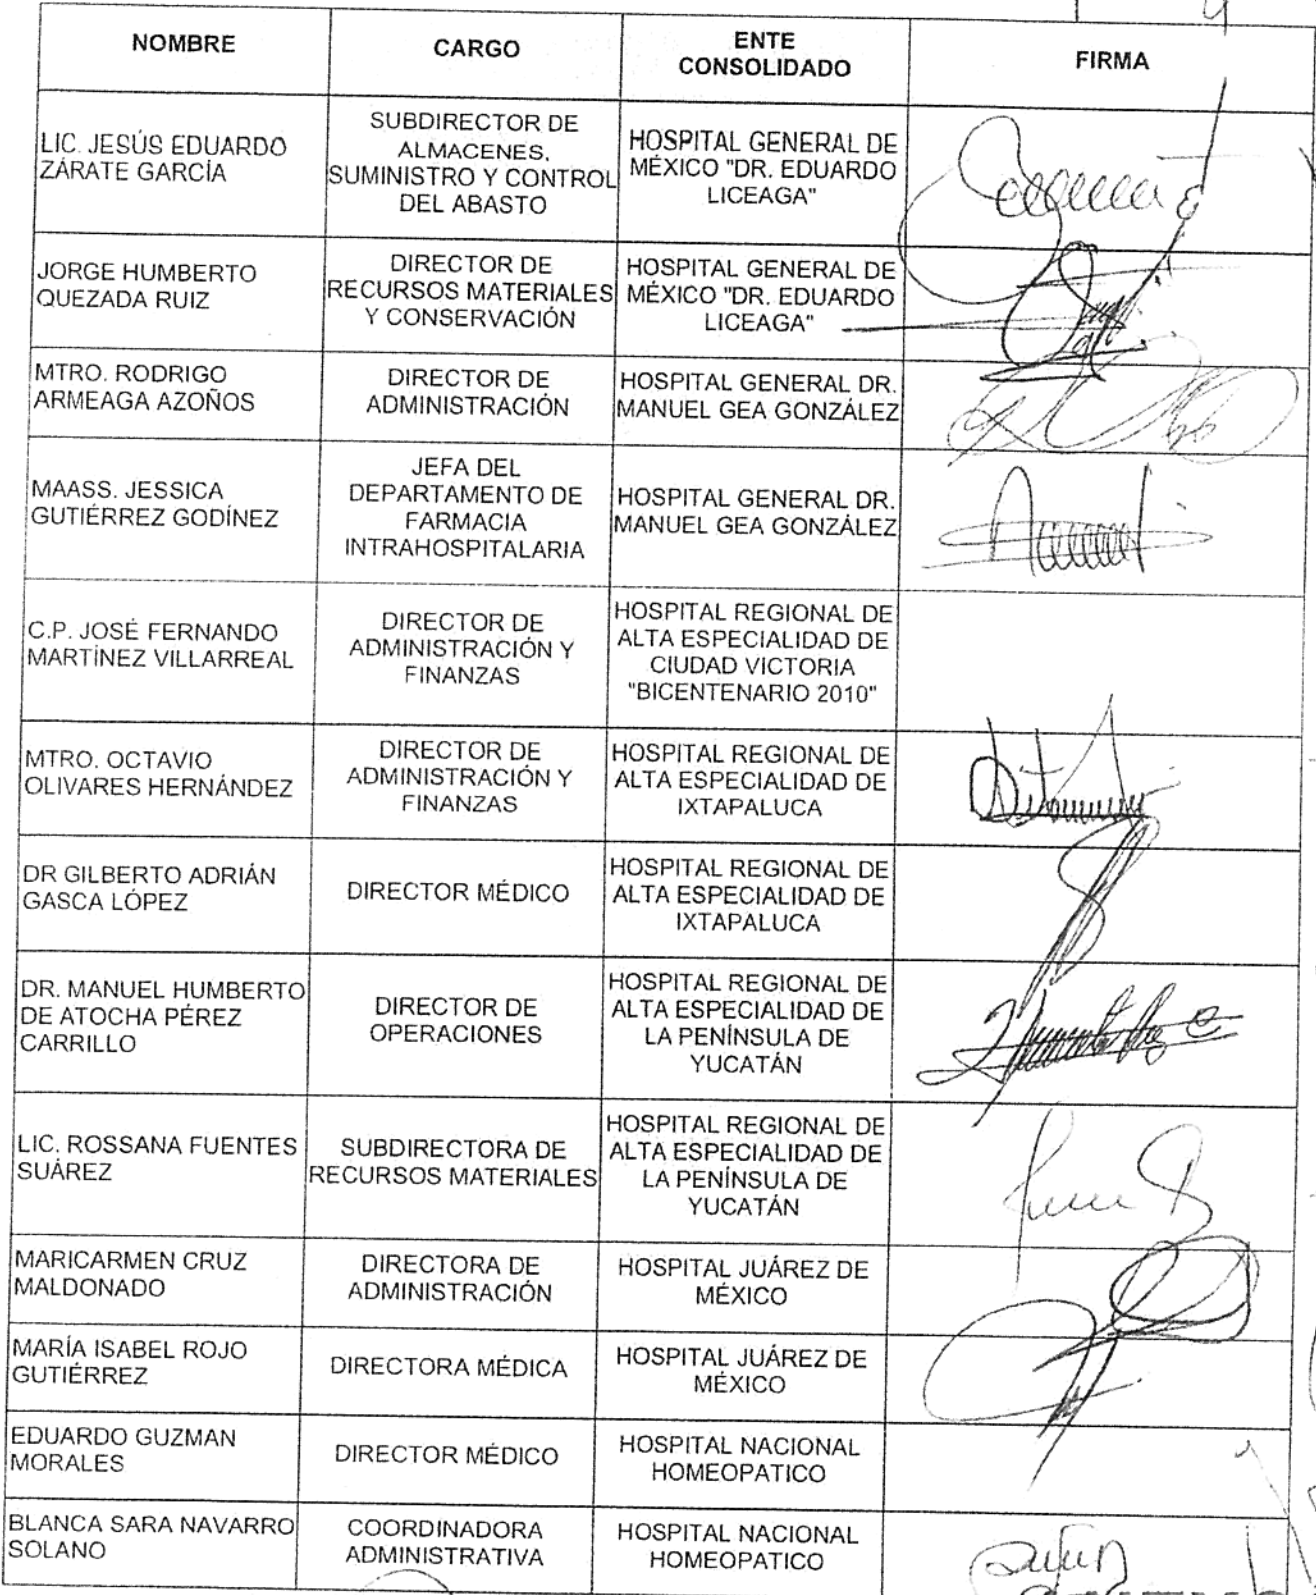 NOMBRE
CARGO
ENTE
CONSOLIDADO
FIRMA
LIC. JESÚS EDUARDO
ZÁRATE GARCÍA
SUBDIRECTOR DE
ALMACENES,
SUMINISTRO Y CONTROL
DEL ABASTO
HOSPITAL GENERAL DE
MÉXICO "DR. EDUARDO
LICEAGA"
JORGE HUMBERTO
QUEZADA RUIZ
DIRECTOR DE
RECURSOS MATERIALES
Y CONSERVACIÓN
HOSPITAL GENERAL DE
MÉXICO "DR. EDUARDO
LICEAGA"
MTRO. RODRIGO
ARMEAGA AZOÑOS
DIRECTOR DE
ADMINISTRACIÓN
HOSPITAL GENERAL DR.
MANUEL GEA GONZÁLEZ
MAASS. JESSICA
GUTIÉRREZ GODÍNEZ
JEFA DEL
DEPARTAMENTO DE
FARMACIA
INTRAHOSPITALARIA
HOSPITAL GENERAL DR.
MANUEL GEA GONZÁLEZ
C.P. JOSÉ FERNANDO
MARTÍNEZ VILLARREAL
DIRECTOR DE
ADMINISTRACIÓN Y
FINANZAS
HOSPITAL REGIONAL DE
ALTA ESPECIALIDAD DE
CIUDAD VICTORIA
"BICENTENARIO 2010"
MTRO. OCTAVIO
OLIVARES HERNÁNDEZ
DIRECTOR DE
ADMINISTRACIÓN Y
FINANZAS
HOSPITAL REGIONAL DE
ALTA ESPECIALIDAD DE
IXTAPALUCA
DR GILBERTO ADRIÁN
GASCA LÓPEZ
DIRECTOR MÉDICO
HOSPITAL REGIONAL DE
ALTA ESPECIALIDAD DE
IXTAPALUCA
DR. MANUEL HUMBERTO
DE ATOCHA PÉREZ
CARRILLO
DIRECTOR DE
OPERACIONES
HOSPITAL REGIONAL DE
ALTA ESPECIALIDAD DE
LA PENÍNSULA DE
YUCATÁN
LIC. ROSSANA FUENTES
SUÁREZ
SUBDIRECTORA DE
RECURSOS MATERIALES
HOSPITAL REGIONAL DE
ALTA ESPECIALIDAD DE
LA PENÍNSULA DE
YUCATÁN
MARICARMEN CRUZ
MALDONADO
DIRECTORA DE
ADMINISTRACIÓN
HOSPITAL JUÁREZ DE
MÉXICO
MARÍA ISABEL ROJO
GUTIÉRREZ
DIRECTORA MÉDICA
HOSPITAL JUÁREZ DE
MÉXICO
EDUARDO GUZMAN
MORALES
DIRECTOR MÉDICO
HOSPITAL NACIONAL
HOMEOPATICO
BLANCA SARA NAVARRO
SOLANO
COORDINADORA
ADMINISTRATIVA
HOSPITAL NACIONAL
HOMEOPATICO